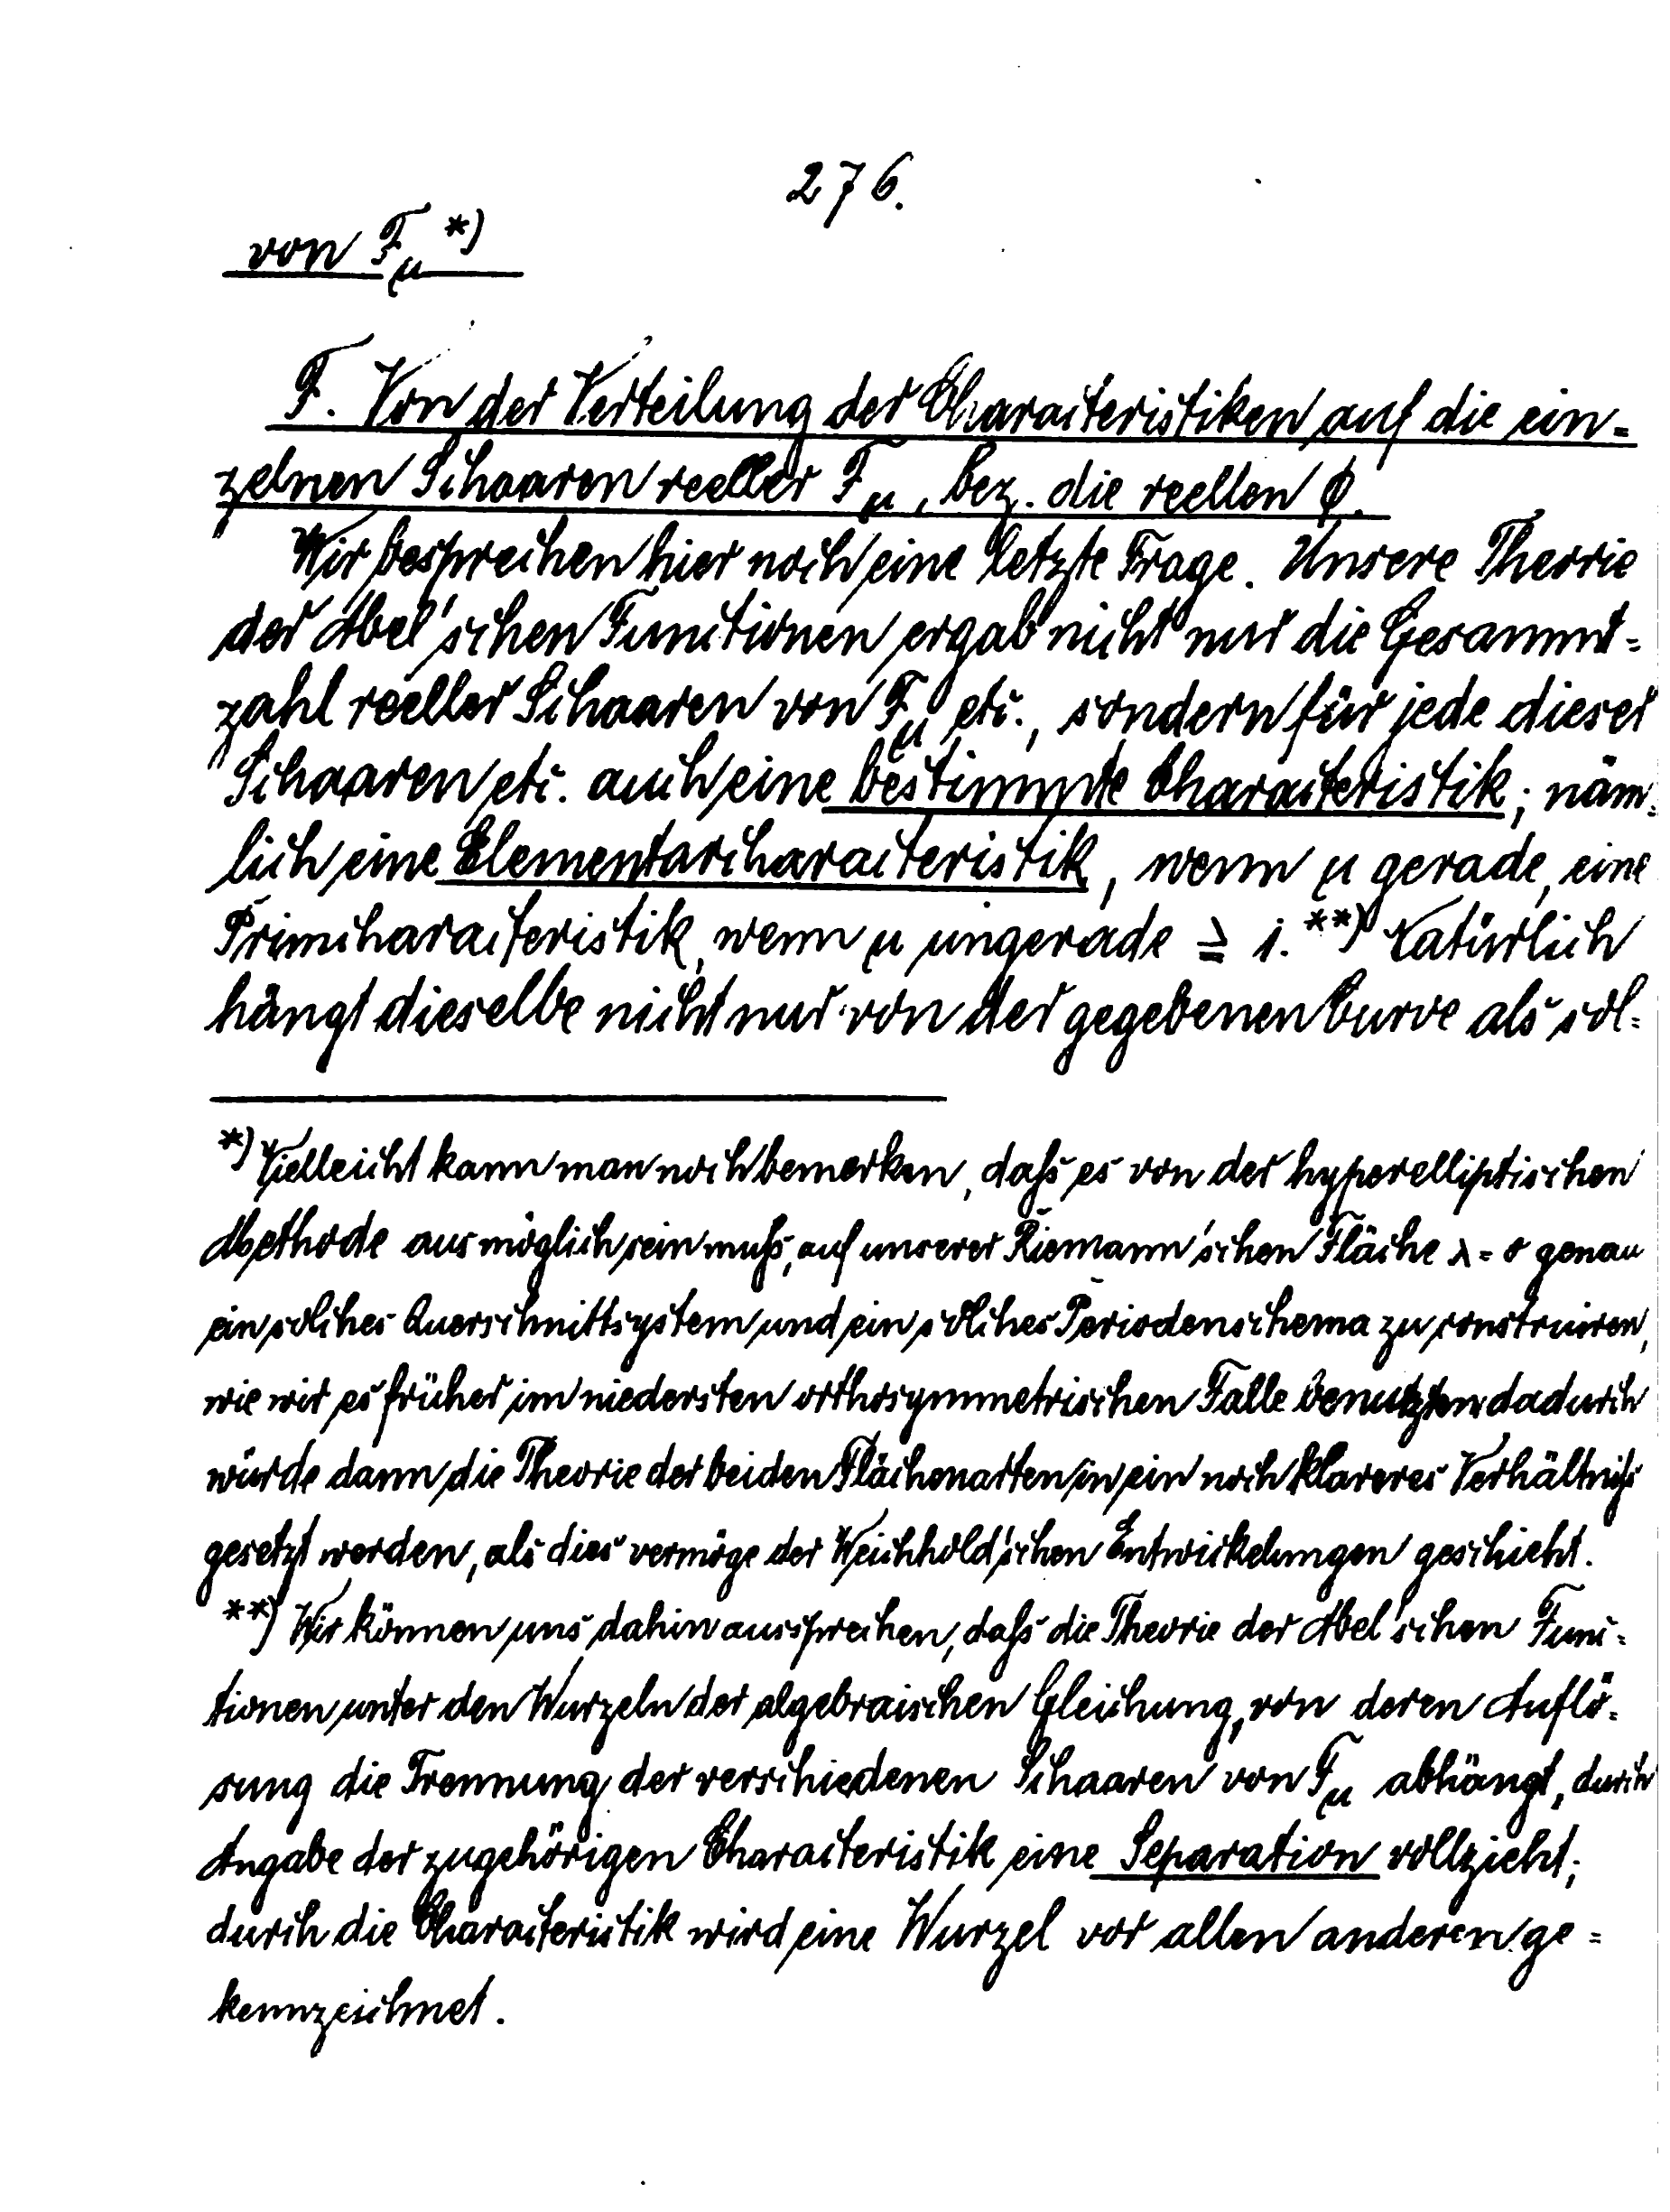 276.
von F_μ *)
F. Von der Verteilung der Characteristiken auf die ein=
zelnen Schaaren reeller F_μ, bez. die reellen ϕ.
Wir besprechen hier noch eine letzte Frage. Unsere Theorie
der Abel'schen Functionen ergab nicht nur die Gesammt=
zahl reeller Schaaren von F_μ etc., sondern für jede dieser
Schaaren etc. auch eine bestimmte Characteristik; näm=
lich eine Elementarcharacteristik, wenn μ gerade, eine
Primcharacteristik, wenn μ ungerade ≧ 1. **) Natürlich
hängt dieselbe nicht nur von der gegebenen Curve als sol=
*) Vielleicht kann man noch bemerken, dass es von der hyperelliptischen
Methode aus möglich sein muss, auf unserer Riemann'schen Fläche λ = 0 genau
ein solches Querschnittsystem und ein solches Periodenschema zu construiren,
wie wir es früher im niedersten orthosymmetrischen Falle benutzten dadurch
würde dann die Theorie der beiden Flächenarten in ein noch klareres Verhältniss
gesetzt werden, als dies vermöge der Weichhold'schen Entwickelungen geschieht.
**) Wir können uns dahin aussprechen, dass die Theorie der Abel'schen Func=
tionen unter den Wurzeln der algebraischen Gleichung, von deren Auflö=
sung die Trennung der verschiedenen Schaaren von F_μ abhängt, durch
Angabe der zugehörigen Characteristik eine Separation vollzieht;
durch die Characteristik wird eine Wurzel vor allen anderen ge=
kennzeichnet.